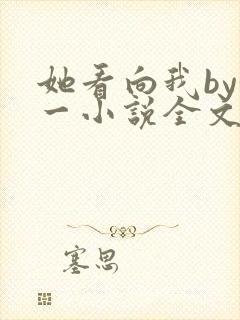 她看向我by
一小说全文
塞思